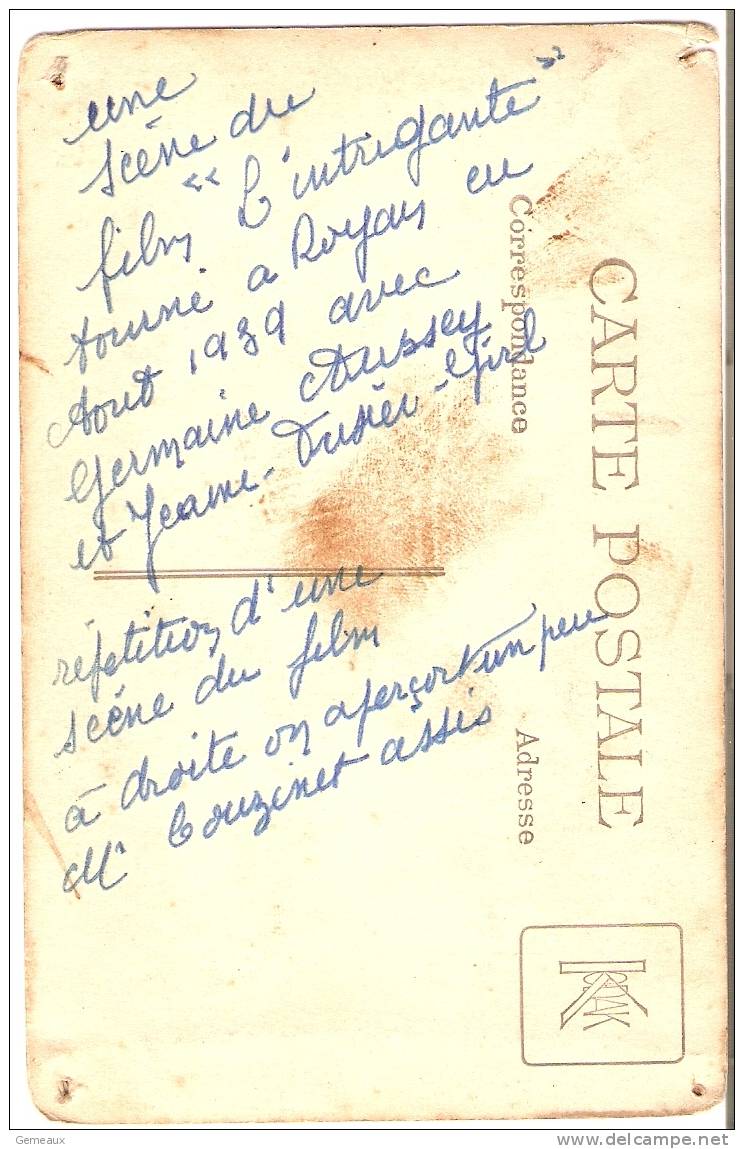 une
scène du
film "L'intrigante"
tourné a Royan en
Aout 1939 avec
Germaine Aussey
et Jeanne-Fusier-Gir
répétition d'une
scène du film
à droite on aperçoit un peu
Mr Couzinet assis
CARTE POSTALE
Correspondance
Adresse
KODAK
Gemeaux
http://www.delcampe.net